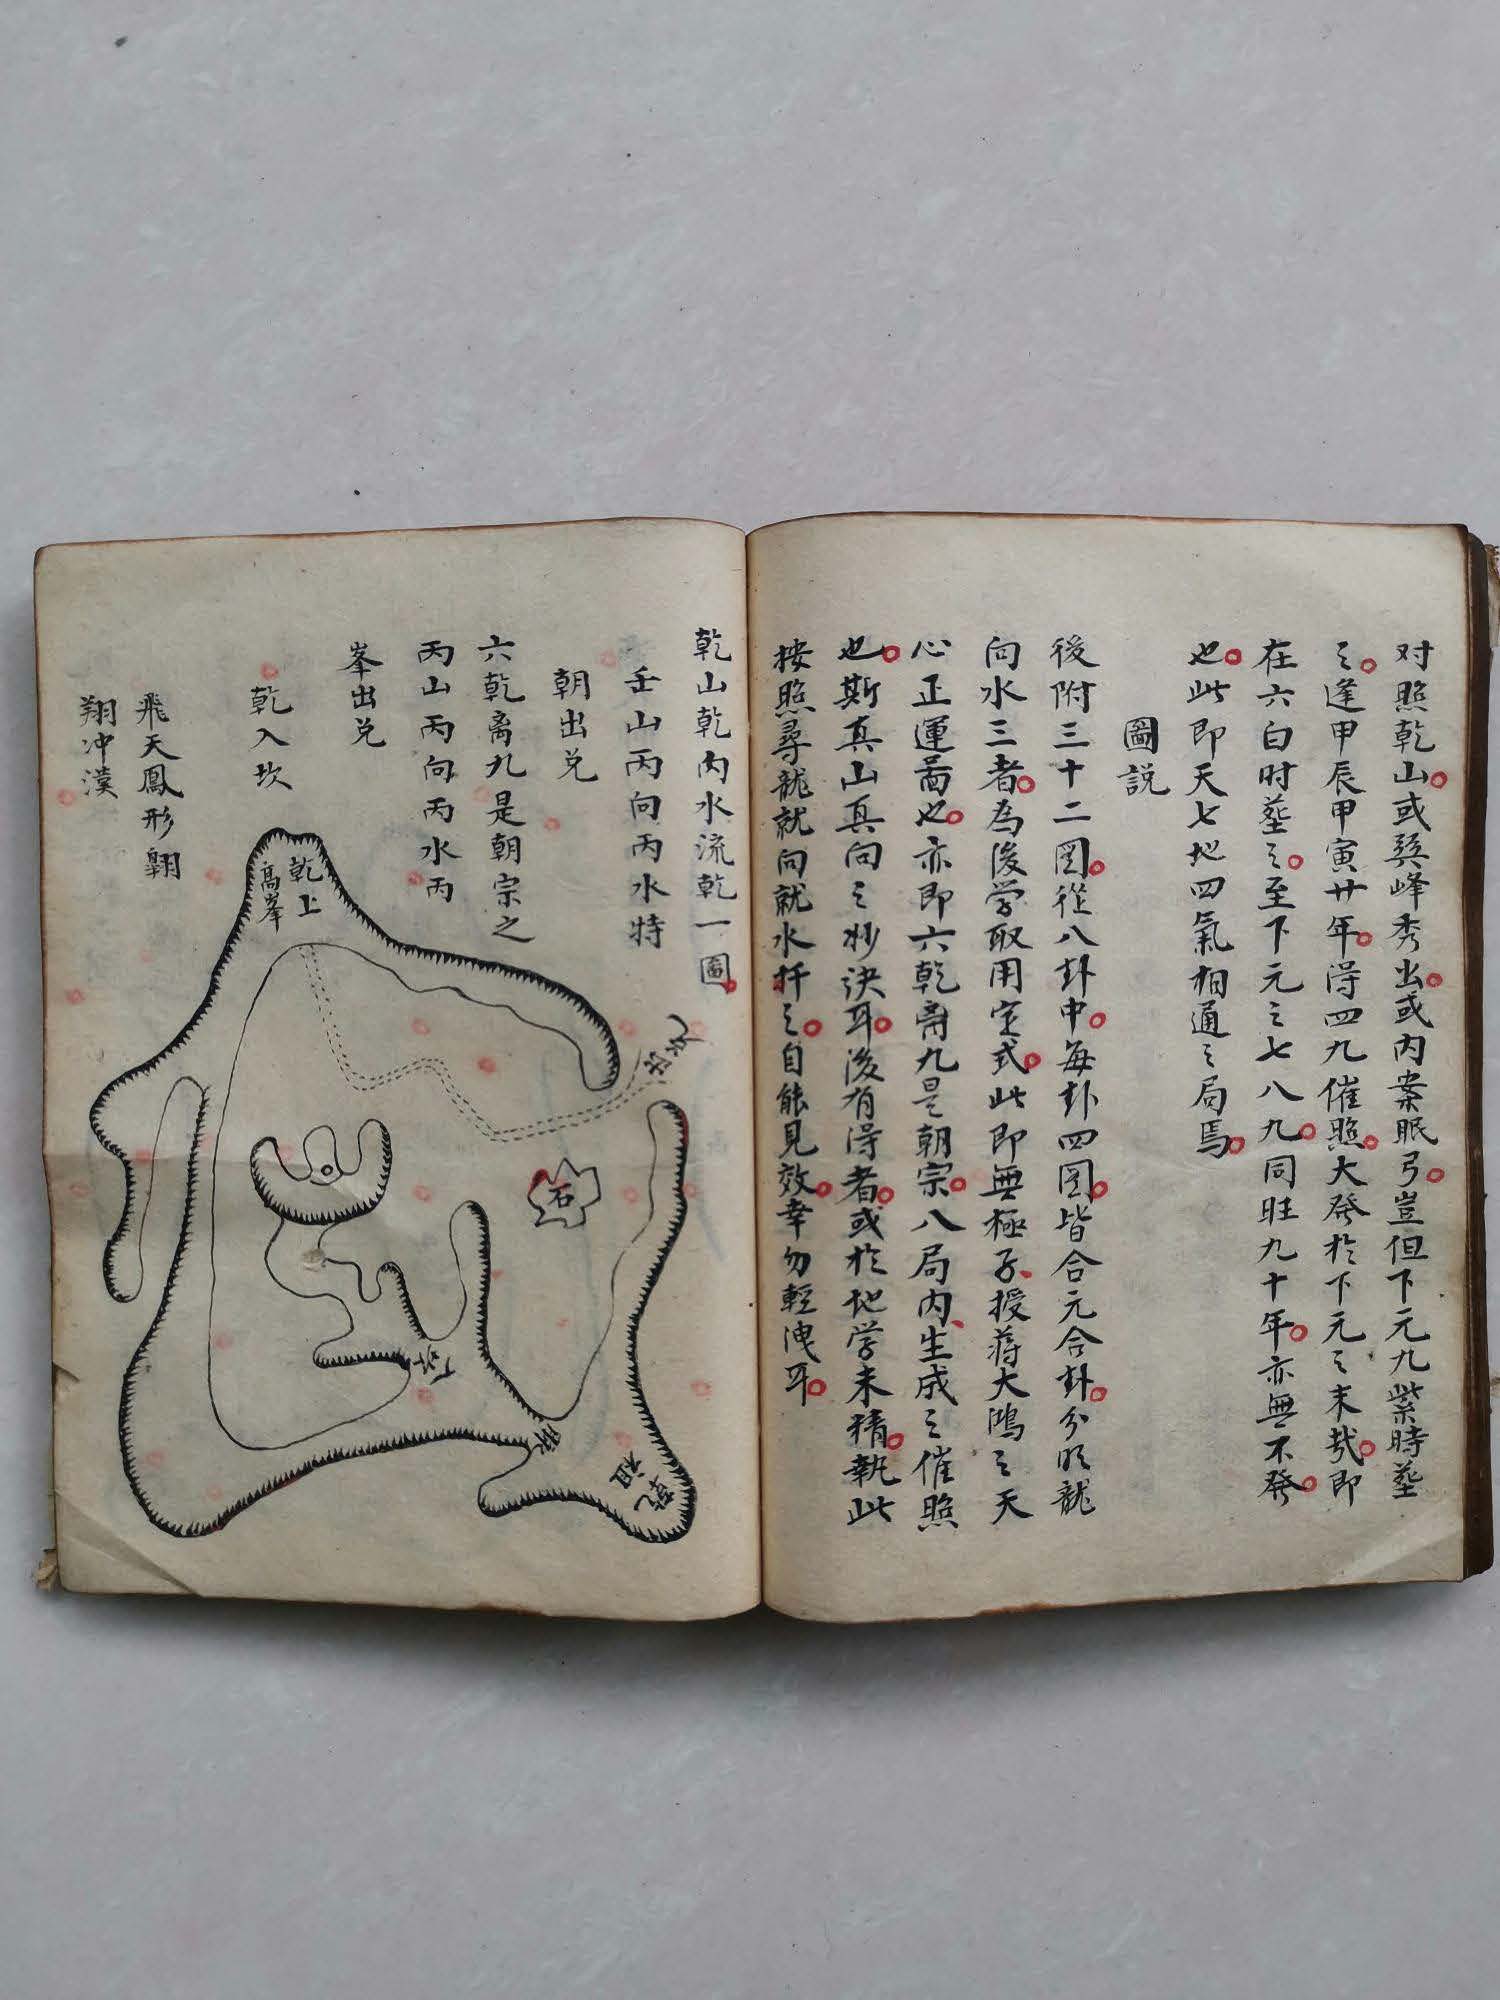 对照乾山或巽峰秀出或内案眠弓豈但下元九紫時塟
之逢甲辰甲寅廿年得四九催照大發於下元之末哉即
在六白时塟之至下元之七八九同旺九十年亦無不發
也此即天七地四氣相通之局焉
圖説
後附三十二图從八卦中每卦四图皆合元合卦分明龍
向水三者為後学取用定式此即無極子授蒋大鴻之天
心正運啚也亦即六乾离九是朝宗八局内生成之催照
也斯真山真向之妙訣耳後有得者或於地学未精執此
按照尋龍就向就水扦之自能見效幸勿輕洩耳
乾山乾向水流乾一圖
壬山丙向丙水特
朝出兑
六乾离九是朝宗之
丙山丙向丙水丙
峯出兑
乾入坎
飛天鳳形翱
翔冲漢
乾上
高峯
石
乾
祖